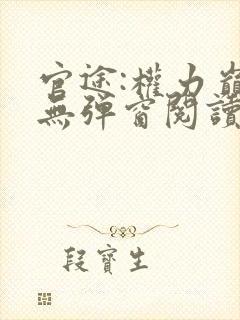 官途:權力巔
無彈窗閱讀
段寶生